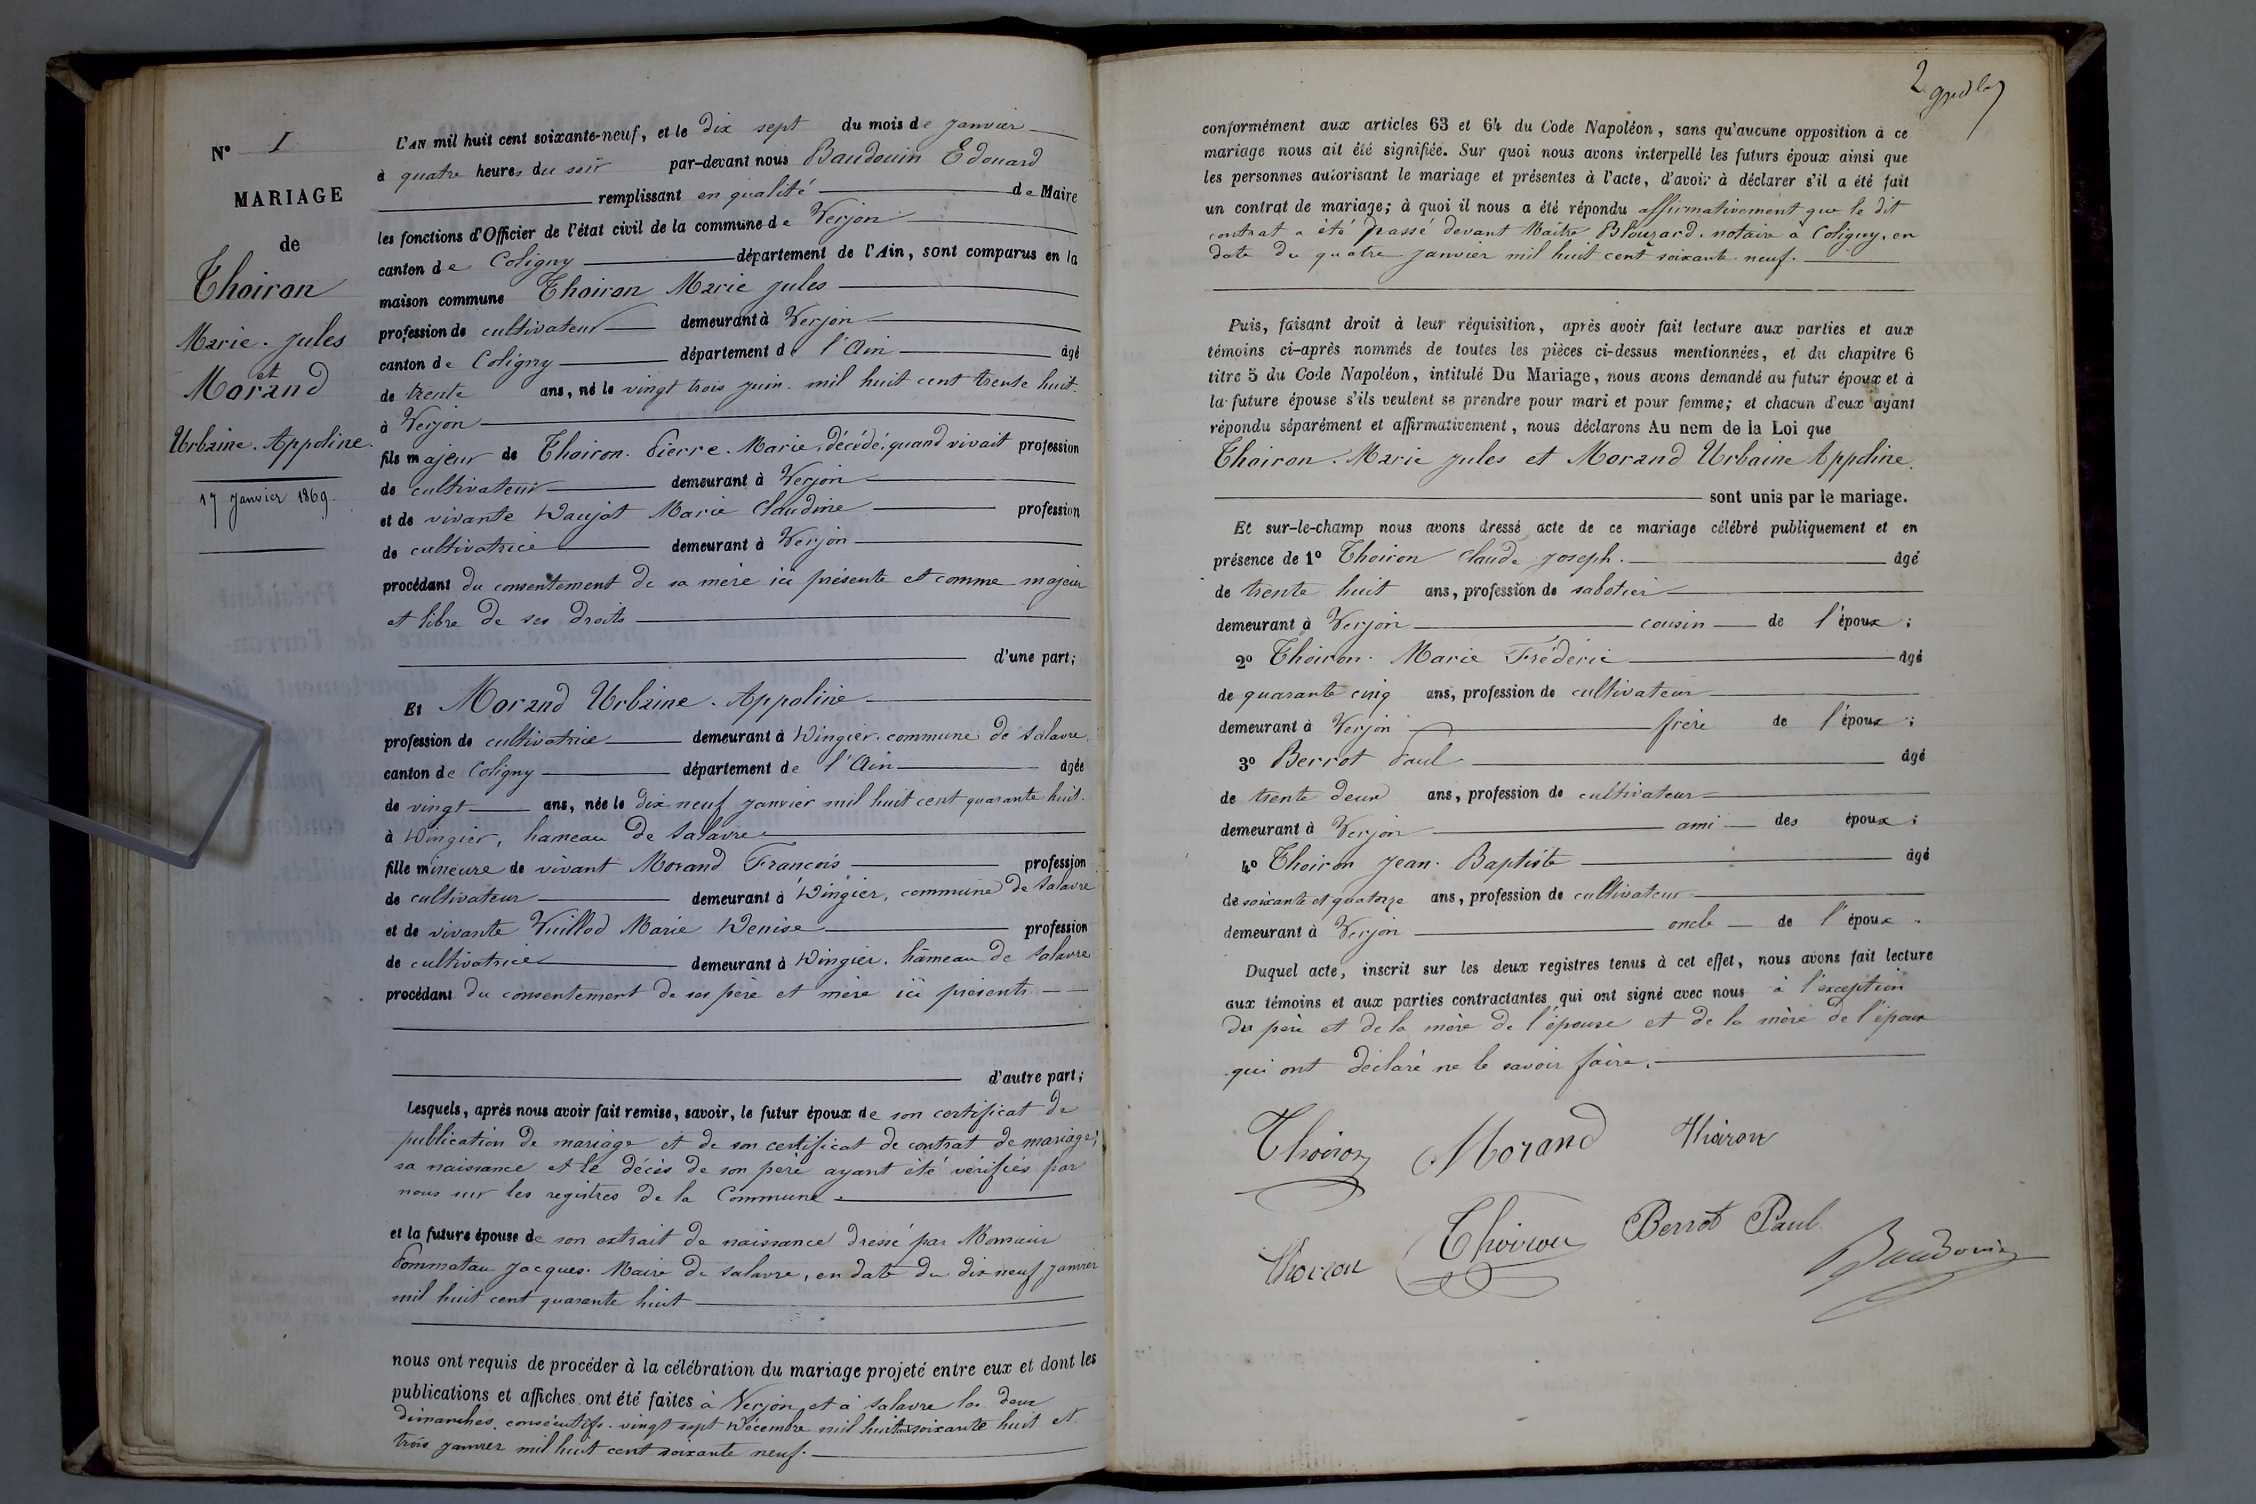 N° 1
MARIAGE
de
Thoiron
Marie. Jules
et
Morand
Urbaine. Appoline.
17 Janvier 1869.
L'AN mil huit cent soixante-neuf, et le dix sept du mois de Janvier
à quatre heures du soir par-devant nous Baudouin Edouard
remplissant en qualité de Maire
les fonctions d'Officier de l'état civil de la commune de Verjon
canton de Coligny département de l'Ain, sont comparus en la
maison commune Thoiron Marie Jules
profession de cultivateur demeurant à Verjon
canton de Coligny département de l'Ain âgé
de trente ans, né le vingt trois Juin mil huit cent trente huit.
à Verjon
fils majeur de Thoiron. Pierre. Marie, décédé, quand vivait profession
de cultivateur demeurant à Verjon
et de vivante Daujat Marie Claudine profession
de cultivatrice demeurant à Verjon
procédant du consentement de sa mère ici présente et comme majeur
et libre de ses droits
d'une part;
Et Morand Urbaine. Appoline
profession de cultivatrice demeurant à Dingier. commune de Salavre.
canton de Coligny département de l'Ain âgée
de vingt ans, née le dix neuf Janvier mil huit cent quarante huit.
à Dingier, hameau de Salavre
fille mineure de vivant Morand François profession
de cultivateur demeurant à Dingier, commune de Salavre
et de vivante Vuillod Marie Denise profession
de cultivatrice demeurant à Dingier. hameau de Salavre
procédant du consentement de ses père et mère ici présents
d'autre part;
Lesquels, après nous avoir fait remise, savoir, le futur époux de son certificat de
publication de mariage et de son certificat de contrat de mariage;
sa naissance et le décès de son père ayant été vérifiés par
nous sur les registres de la Commune.
et la future épouse de son extrait de naissance dressé par Monsieur
Pommatau Jacques. Maire de Salavre, en date du dix neuf Janvier
mil huit cent quarante huit
nous ont requis de procéder à la célébration du mariage projeté entre eux et dont les
publications et affiches ont été faites à Verjon et à Salavre les deux
dimanches consécutifs. vingt sept Décembre mil huit cent soixante huit et
trois Janvier mil huit cent soixante neuf.
2
conformément aux articles 63 et 64 du Code Napoléon, sans qu'aucune opposition à ce
mariage nous ait été signifiée. Sur quoi nous avons interpellé les futurs époux ainsi que
les personnes autorisant le mariage et présentes à l'acte, d'avoir à déclarer s'il a été fait
un contrat de mariage; à quoi il nous a été répondu affirmativement que le dit
contrat a été passé devant Maître Blouzard. notaire à Coligny, en
date du quatre Janvier mil huit cent soixante. neuf.
Puis, faisant droit à leur réquisition, après avoir fait lecture aux parties et aux
témoins ci-après nommés de toutes les pièces ci-dessus mentionnées, et du chapitre 6
titre 5 du Code Napoléon, intitulé Du Mariage, nous avons demandé au futur époux et à
la future épouse s'ils veulent se prendre pour mari et pour femme; et chacun d'eux ayant
répondu séparément et affirmativement, nous déclarons Au nom de la Loi que
Thoiron. Marie Jules et Morand Urbaine Appoline.
sont unis par le mariage.
Et sur-le-champ nous avons dressé acte de ce mariage célébré publiquement et en
présence de 1° Thoiron Claude Joseph. âgé
de trente huit ans, profession de sabotier
demeurant à Verjon cousin de l'époux;
2° Thoiron. Marie Fréderic âgé
de quarante cinq ans, profession de cultivateur
demeurant à Verjon frère de l'époux;
3° Berrot Paul âgé
de trente deux ans, profession de cultivateur
demeurant à Verjon ami des époux;
4° Thoiron Jean. Baptiste âgé
de soixante et quatorze ans, profession de cultivateur
demeurant à Verjon oncle de l'époux.
Duquel acte, inscrit sur les deux registres tenus à cet effet, nous avons fait lecture
aux témoins et aux parties contractantes qui ont signé avec nous à l'exception
du père et de la mère de l'épouse et de la mère de l'époux
qui ont déclaré ne le savoir faire.
Thoiron Morand Thoiron
Thoiron Thoiron Berrot Paul
Baudouin